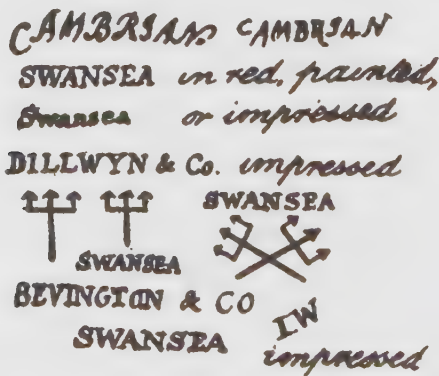 CAMBRIAN CAMBRIAN
SWANSEA in red, painted,
Swansea or impressed
DILLWYN & Co. impressed
SWANSEA
SWANSEA
BEVINGTON & CO
SWANSEA
IW
impressed